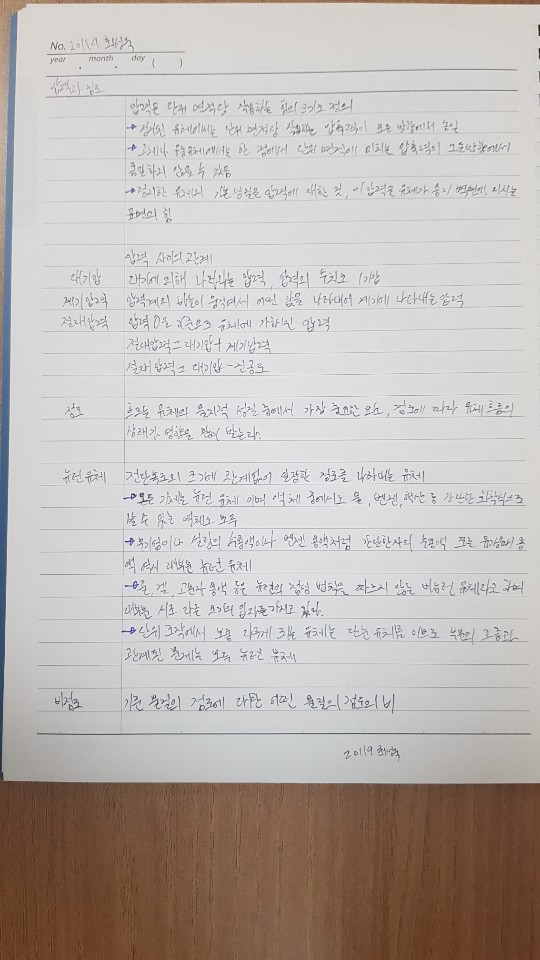 No. 2019
year . month . day ( )
압력과 점도
압력은 단위 면적당 작용하는 힘의 크기로 정의
→ 정지된 유체에서는 단위 면적당 작용하는 압축력이 모든 방향에서 동일
→ 고체나 유동유체에서는 한 점에서 단위 면적에 미치는 압축력이 모든방향에서
동일하지 않을 수 있음
→ 정지한 유체의 기본성질은 압력에 대한 것, 이 압력은 유체가 용기 벽면에 미치는
표면의 힘
압력 사이의 관계
대기압 대기에 의해 나타나는 압력, 압력의 수치로 1기압
계기압력 압력계의 바늘이 움직여서 어떤 값을 나타내어 계기에 나타내는 압력
절대압력 압력 0을 기준으로 유체에 가하신 압력
절대압력 = 대기압 + 계기압력
절대압력 = 대기압 - 진공도
점도 흐르는 유체의 물리적 성질 중에서 가장 중요한 요소, 점도에 따라 유체 흐름의
상태가 영향을 많이 받는다.
뉴턴유체 전단속도의 크기에 관계없이 일정한 점도를 나타내는 유체
→ 모든 기체는 뉴턴 유체이며 액체 중에서도 물, 벤젠, 등 간단한 화학식으로
쓸 수 있는 액체도 모두
→ 무기염이나 설탕의 수용액이나 벤젠 용액처럼 간단한 수용액 또는 용
액 역시 대부분 뉴턴 유체
→ 풀, 겔, 고분자 용액 등은 뉴턴의 점성 법칙을 따르지 않는 비뉴턴 유체라고 하며
대부분 서로 다른 크기의 입자를 가지고 있다.
→ 단위 조작에서 보통 다루게 되는 유체는 단순 유체
관계된 문제는 모두 뉴턴 유체
비점도 기준 물질의 점도에 대한 어떤 물질의 점도의 비
2019